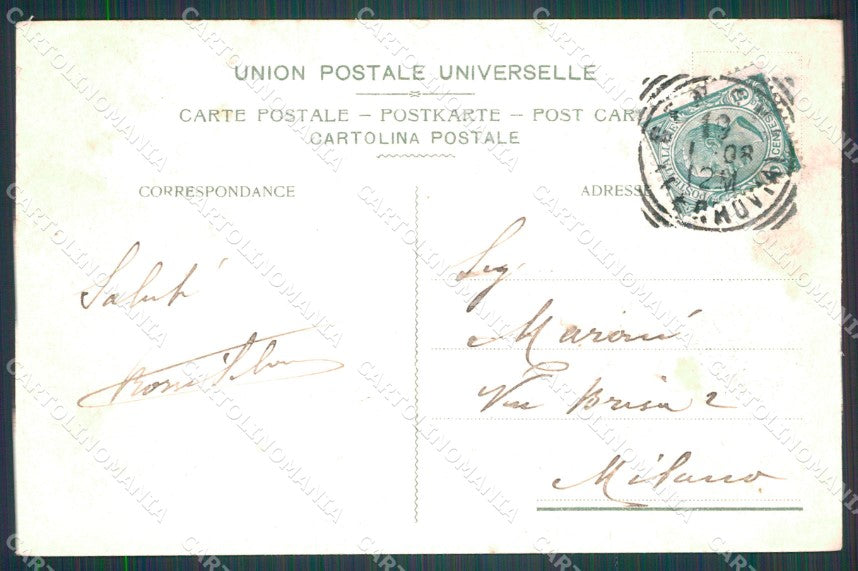 UNION POSTALE UNIVERSELLE
CARTE POSTALE – POSTKARTE – POST CAR
CARTOLINA POSTALE
CORRESPONDANCE
ADRESSE
Saluti
Sig.
Maroni
Via Brisa 2
Milano
19
1.08
12M
CARTOLINOMANIA